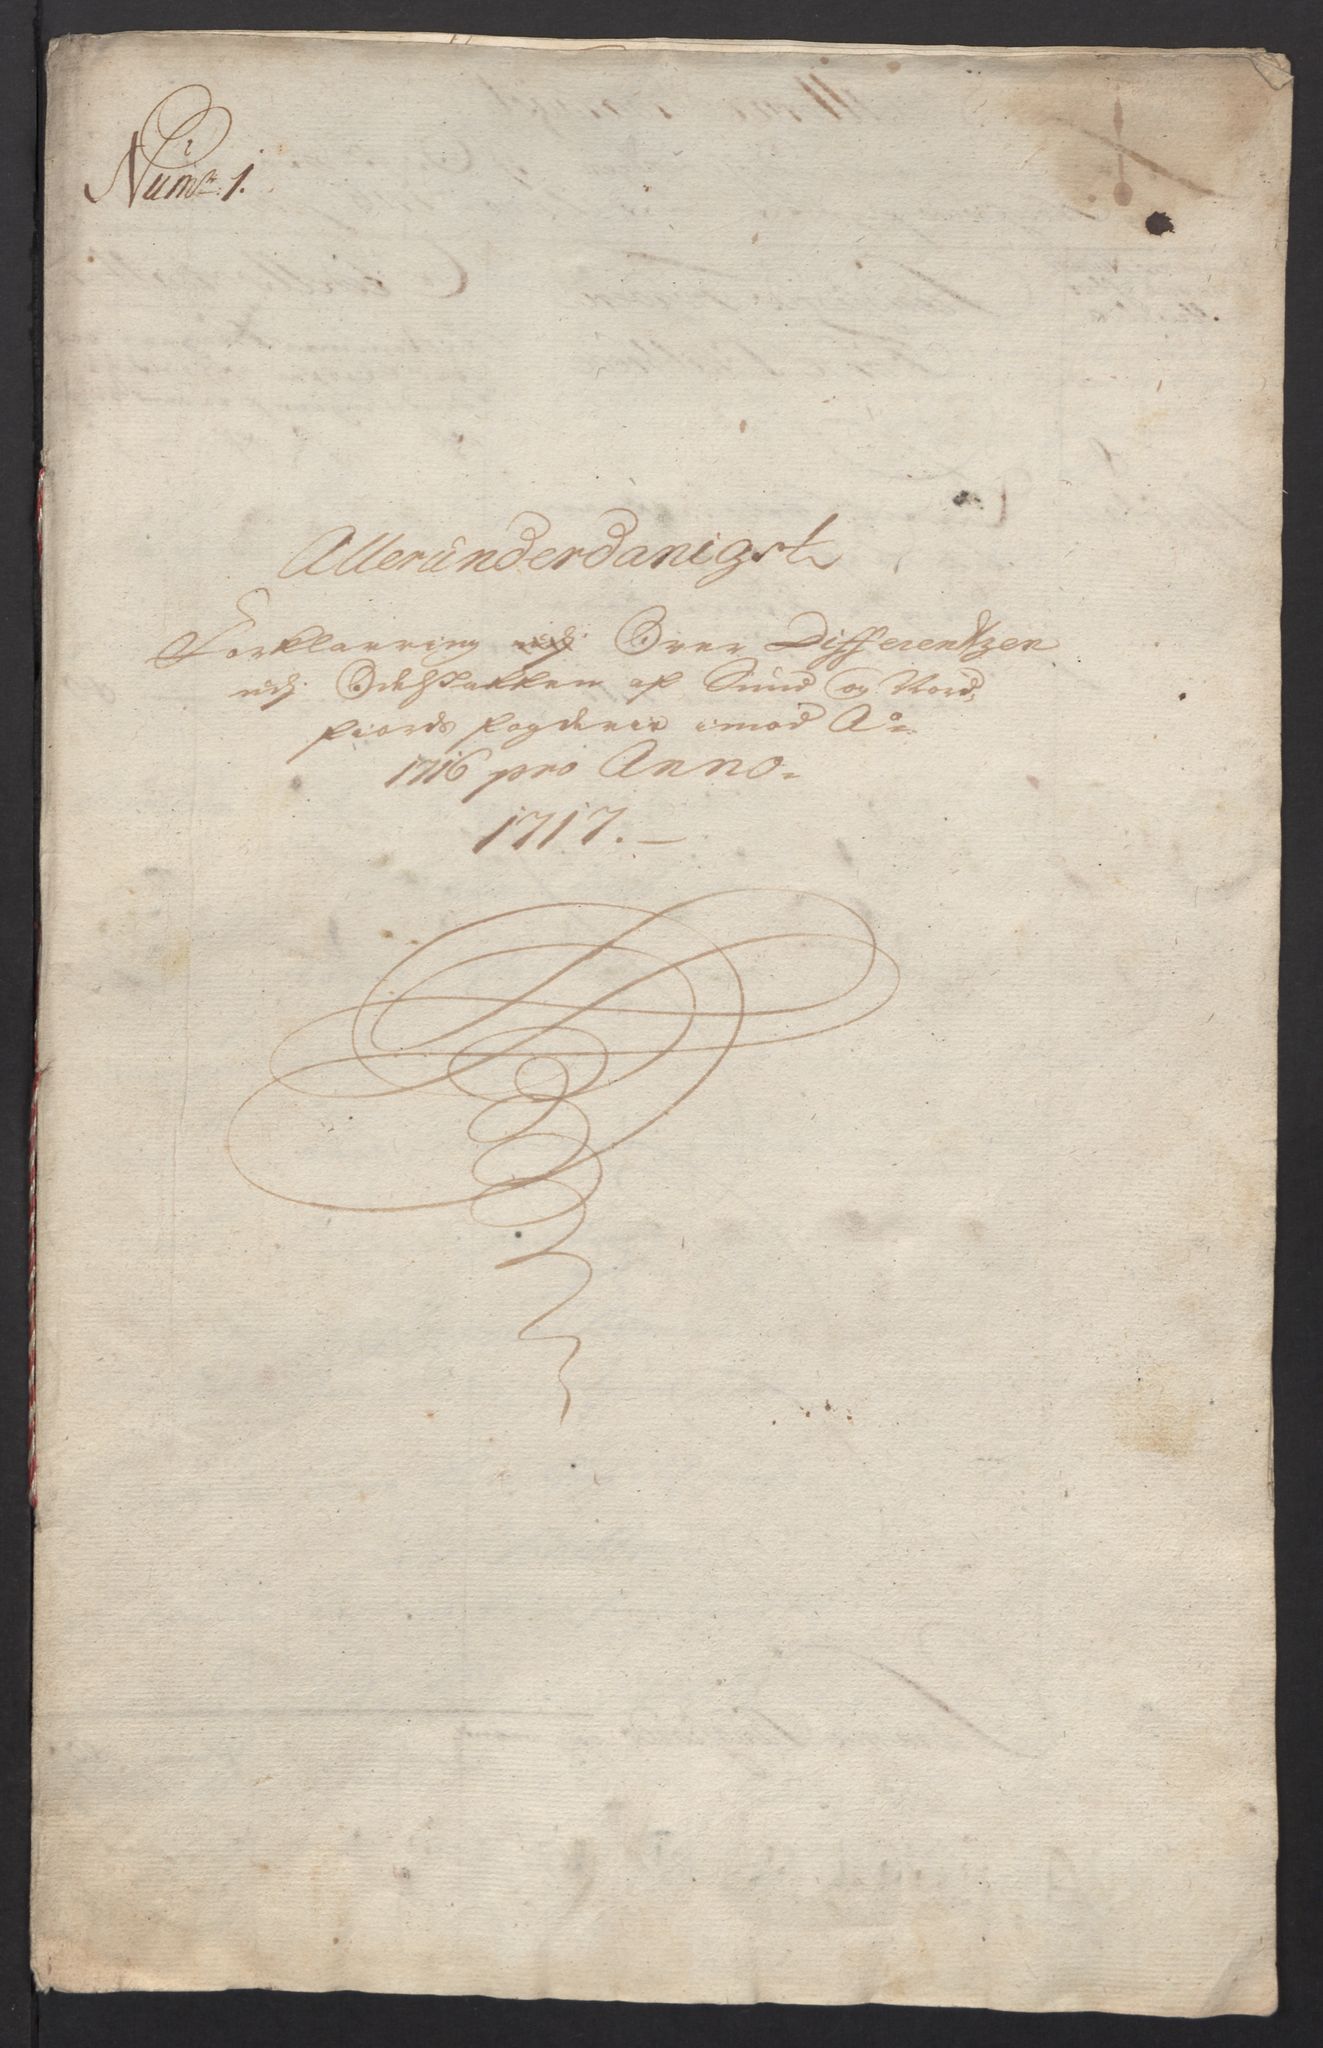 Num: 1.
Alleründerdanigst
Forklarring Over Differentzen
udj Odelskatten af Sund og Nord,
fiords fogderie imod A:
1716 pro Anno.
1717. —